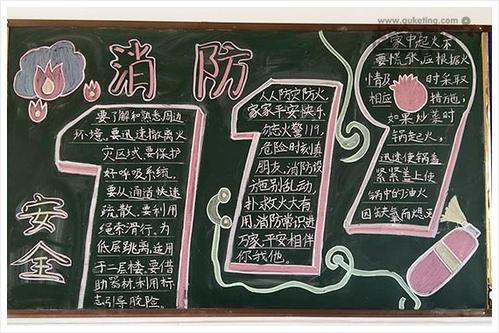 www.quketing.com
消防
安全
要了解和熟悉周边
环境.要迅速撤离火
灾区域.要保护
好呼吸系统.
要从通道快速
疏散.要利用
绳索滑行.为
低层跳离.适用
于二层楼.要借
助器材.利用标
志引导脱险.
人人防灾防火,
家家平安快乐.
勿忘火警119,
危险时刻慎
朋友.消防设
施别乱动,
扑救大火有
用.消防常识进
万家,平安相伴
你我他.
家中起火不
要慌张,应根据火
情及时采取
相应措施,
如果炒菜时
锅起火,
迅速使锅盖
紧紧盖上使
锅中的油火
因缺氧而熄灭